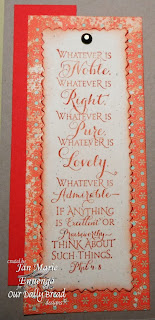 Whatever is
Noble.
Whatever is
Right.
Whatever is
Pure.
Whatever is
Lovely.
Whatever is
Admirable.
If Anything
is Excellent or
Praiseworthy
Think About
Such Things.
Phil 4:8
created by
Jan Marie
Ennenga
Our Daily Bread
designs